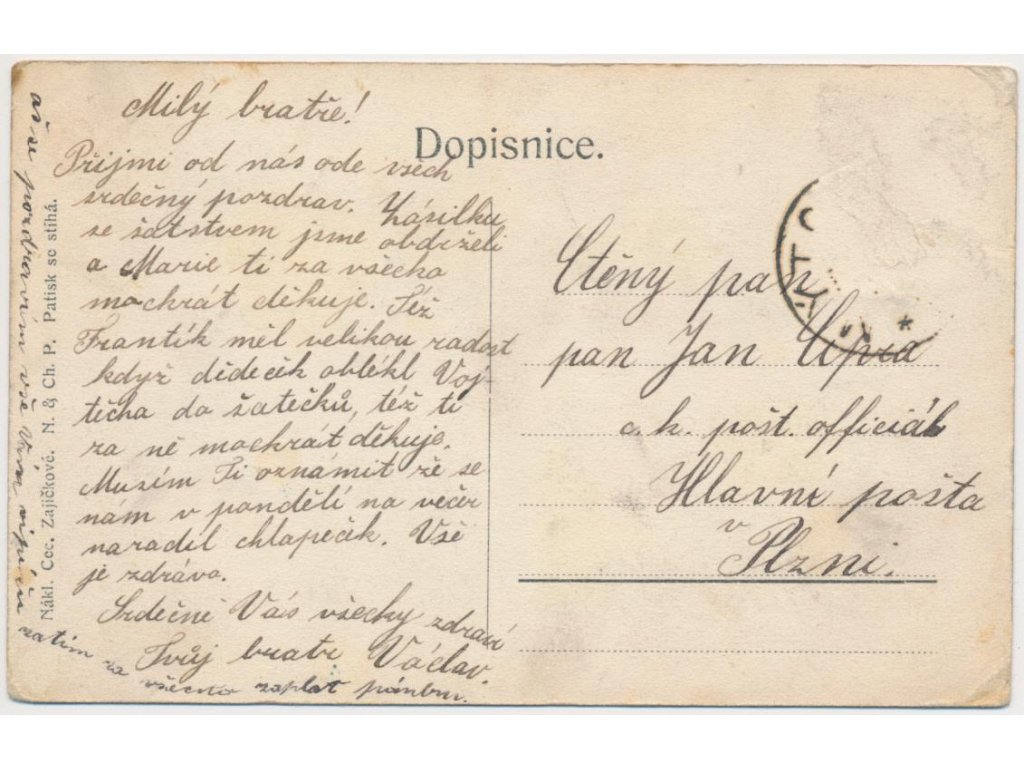 Dopisnice.
Milý bratře!
Přijmi od nás ode všech
srdečný pozdrav. Zásilku
se šatstvem jsme obdrželi
a Marie ti za všecko
mockrát děkuje. Též
Frantík měl velikou radost
když dideček oblékl Voj-
těcha do šatečků, též ti
za ně mockrát děkuje.
Musím Ti oznámit že se
nám v pondělí na večer
naradil chlapeček. Vše
je zdrávo.
Srdečně Vás všecky zdraví
Tvůj bratr Václav.
zatim za všecko zaplat pánbu.
pozdravim vše
Ctěný pan
pan Jan
c. k. pošt. officiál
Hlavní pošta
v
Plzni.
Nákl. Cec. Zajíčkové. N. & Ch. P. Patisk se stíhá.